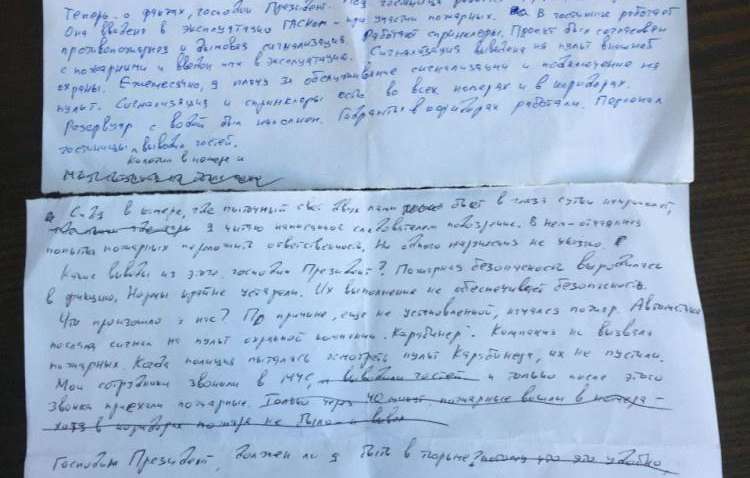 Теперь о фактах, господин Президент. Под гостиницей
Она введена в эксплуатацию ГАСКом при участии пожарных. В гостинице работает
противопожарная и бытовая сигнализация. Работают спринклеры. Проект был согласован
с пожарными и введен в эксплуатацию. Сигнализация выведена на пульт внешней
охраны. Ежемесячно, я плачу за обслуживание сигнализации и подключение на
пульт. Сигнализация и спринклеры есть во всех номерах и в коридорах.
Резервуар с водой был наполнен. Гидранты в коридорах работали. Персонал
гостиницы выводил гостей.
Колотил в номера и
Сидя в камере, где пыточный свет двух ламп бьет в глаза сутки напролет,
я читаю написанное следователем подозрение. В нем отчаянная
попытка пожарных переложить ответственность. Ни одного нарушения не указано.
Какие выводы из этого, господин Президент? Пожарная безопасность выродилась
в фикцию. Нормы крайне устарели. Их выполнение не обеспечивает безопасность.
Что произошло у нас? По причине, еще не установленной, начался пожар. Автоматика
послала сигнал на пульт охранной компании "Карабинер". Компания не вызвала
пожарных. Когда полиция пыталась осмотреть пульт Карабинера, их не пустили.
Мои сотрудники звонили в МЧС, и выводили гостей и только после этого
звонка приехали пожарные. Только через 40 минут пожарные вошли в номера -
хотя в коридорах пожара не было и
Господин Президент, должен ли я быть в тюрьме? потому что это удобно,